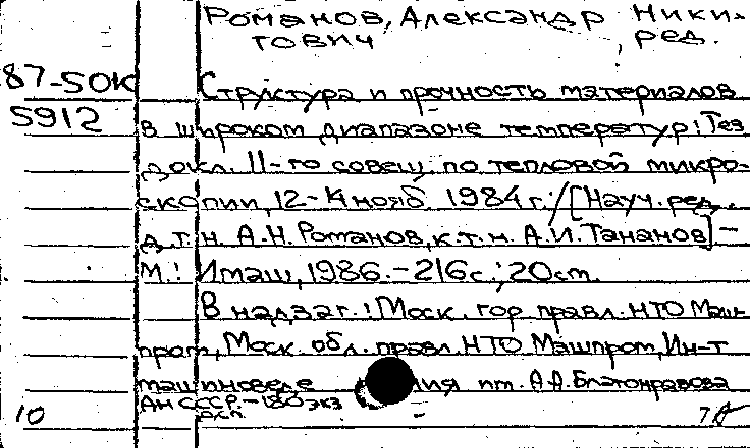 Романов, Александр Ники-
тович, ред.
87-50к
5912
Структура и прочность материалов
в широком диапазоне температур: Тез.
докл. 11-го совещ. по тепловой микро-
скопии, 12-14 нояб. 1984 г. / [Науч. ред.
д.т.н. А.Н. Романов, к.т.н. А.И. Тананов] -
М.: Имаш, 1986. - 216 с.; 20 см.
В надзаг.: Моск. гор. правл. НТО Маш-
пром, Моск. обл. правл. НТО Машпром, Ин-т
машиноведе ния им. А.А. Благонравова
АН СССР. - 180 экз
10